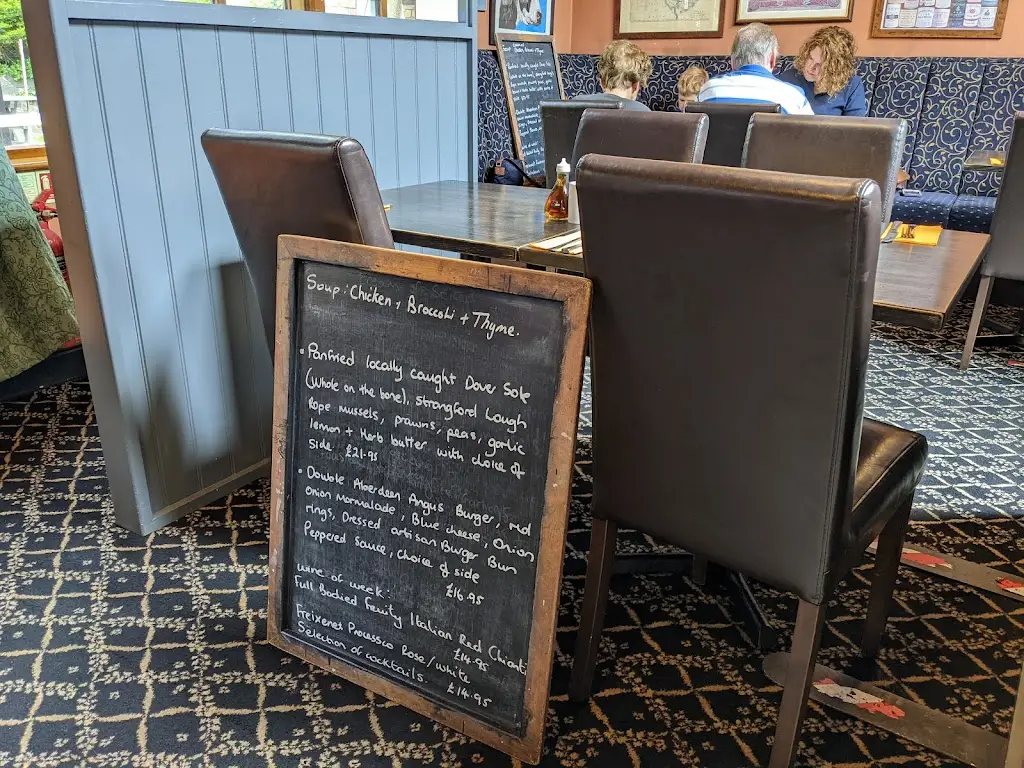 Soup: Chicken, Broccoli + Thyme.
• Panfried locally caught Dover Sole
(whole on the bone), Strangford Lough
Rope mussels, prawns, peas, garlic
lemon + Herb butter with choice of
side. £21.95
• Double Aberdeen Angus Burger, red
onion Marmalade, Blue cheese, Onion
rings, Dressed artisan Burger Bun
Peppered Sauce, choice of side
£16.95
wine of week:
Full Bodied Fruity Italian Red Chianti
£14.95
Freixenet Processco Rose/white
Selection of cocktails. £14.95